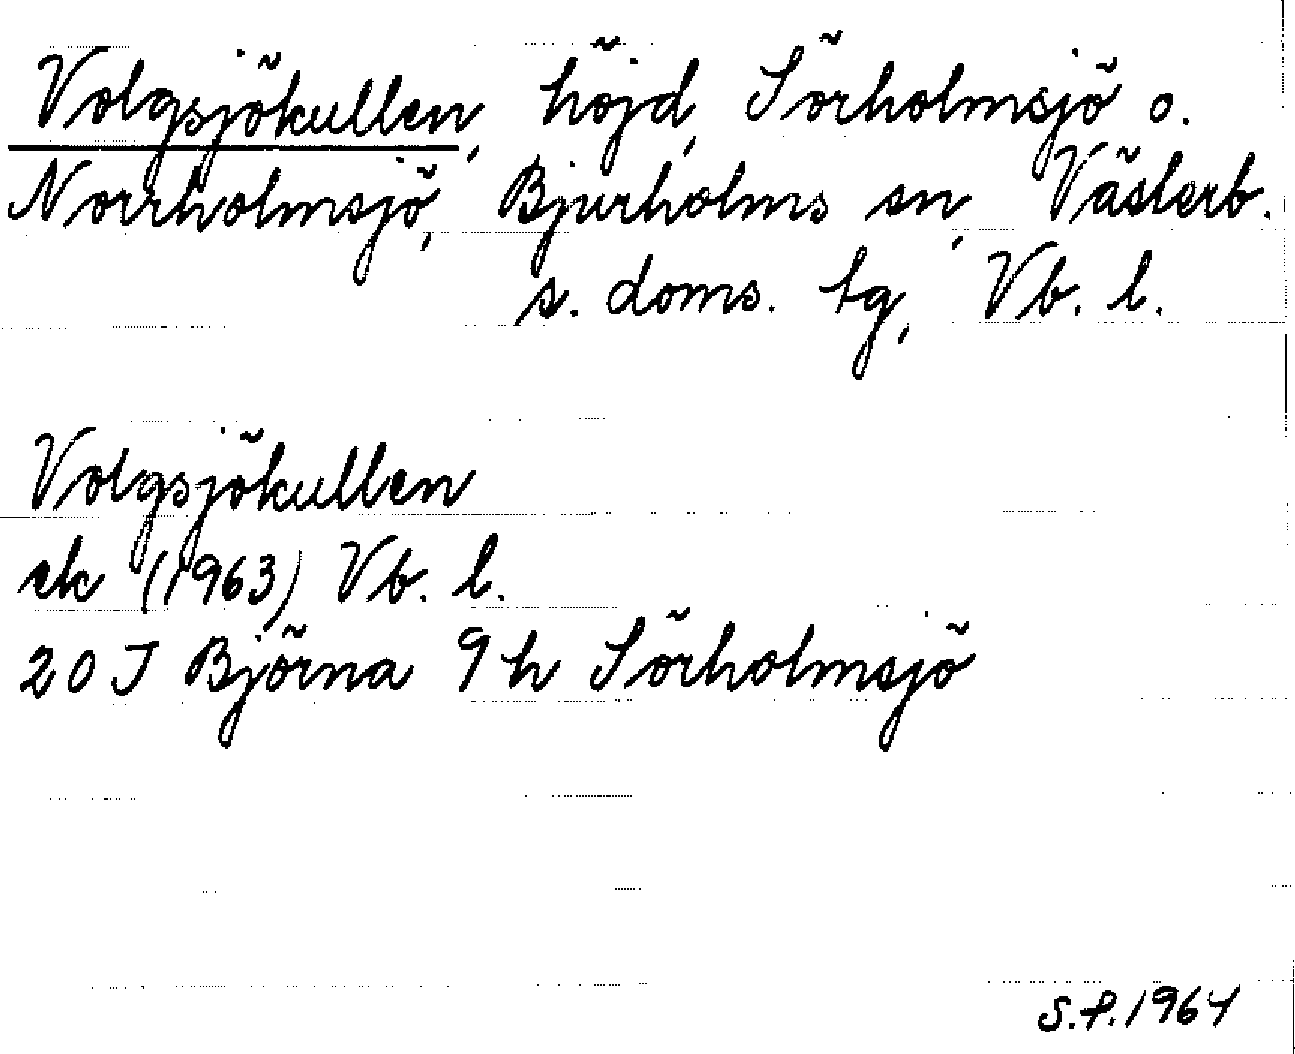 Volgsjökullen, höjd, Sörholmsjö o.
Norrholmsjö, Bjurholms sn, Västerb.
s. doms. tg, Vb. l.
Volgsjökullen
ek (1963) Vb. l.
20 J Björna 9 h Sörholmsjö
S.P. 1964